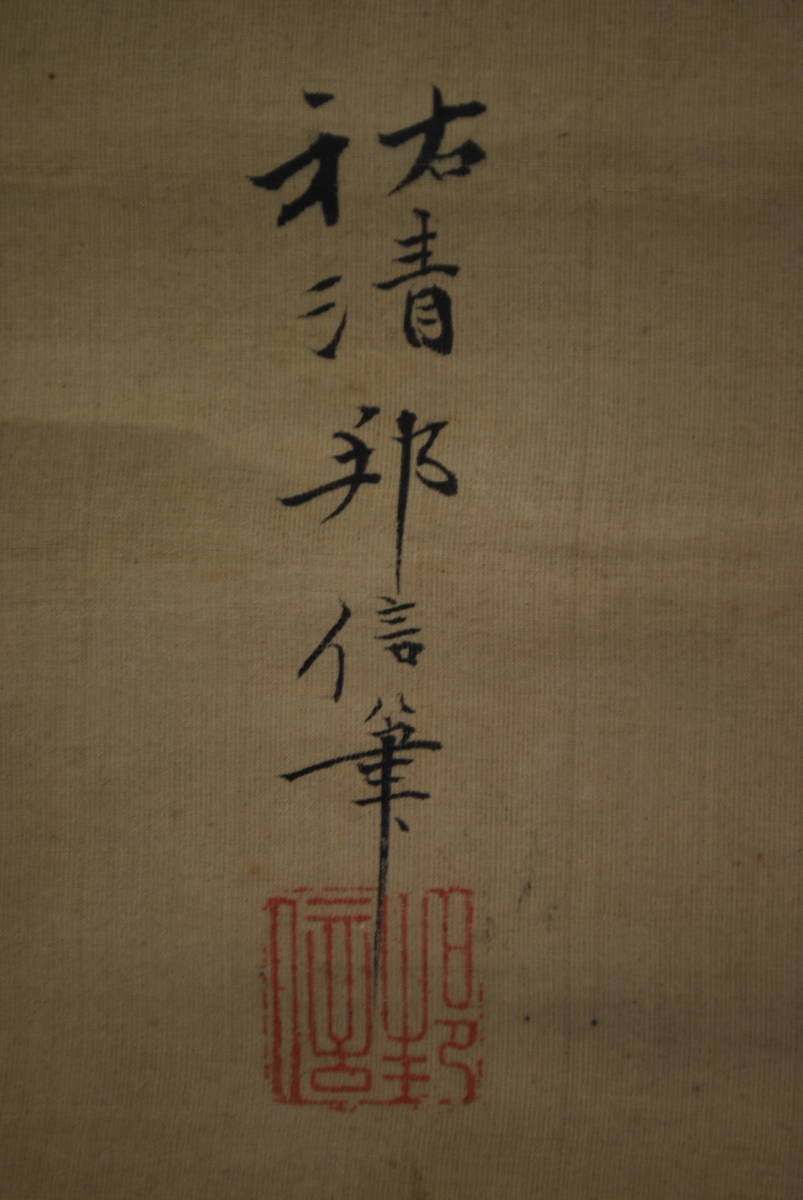 祐清邦信筆
邦信